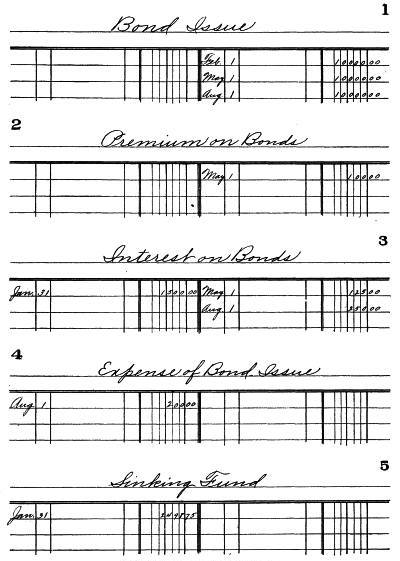 1
Bond Issue
Feb. 1 10000 00
May 1 10000 00
Aug 1 10000 00
2
Premium on Bonds
May 1 100 00
Interest on Bonds
3
Jan. 31 1500 00 May 1 125 00
Aug 1 250 00
4
Expense of Bond Issue
Aug 1 200 00
5
Sinking Fund
Jan. 31 2498 75